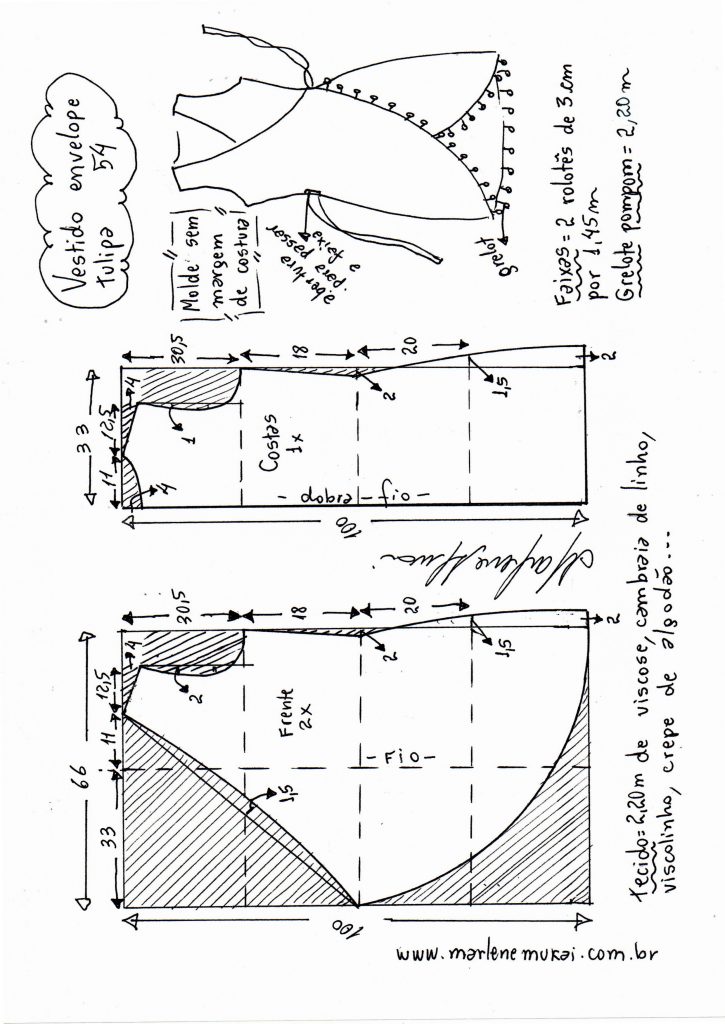 Vestido envelope
tulipa 54
"Molde sem"
margem
"de costura"
Grelot
Faixas = 2 rolotês de 3 cm
por 1,45 m
Grelote pompom = 2,20 m
33
11
12,5
4
4
1
30,5
18
20
2
1,5
2
Costas
1x
- dobra - fio -
100
Marlene Mukai
66
33
11
12,5
4
2
30,5
18
20
2
1,5
2
1,5
Frente
2x
- FIO -
100
tecido = 2,20 m de viscose, cambraia de linho,
viscolinho, crepe de algodão...
www.marlenemukai.com.br